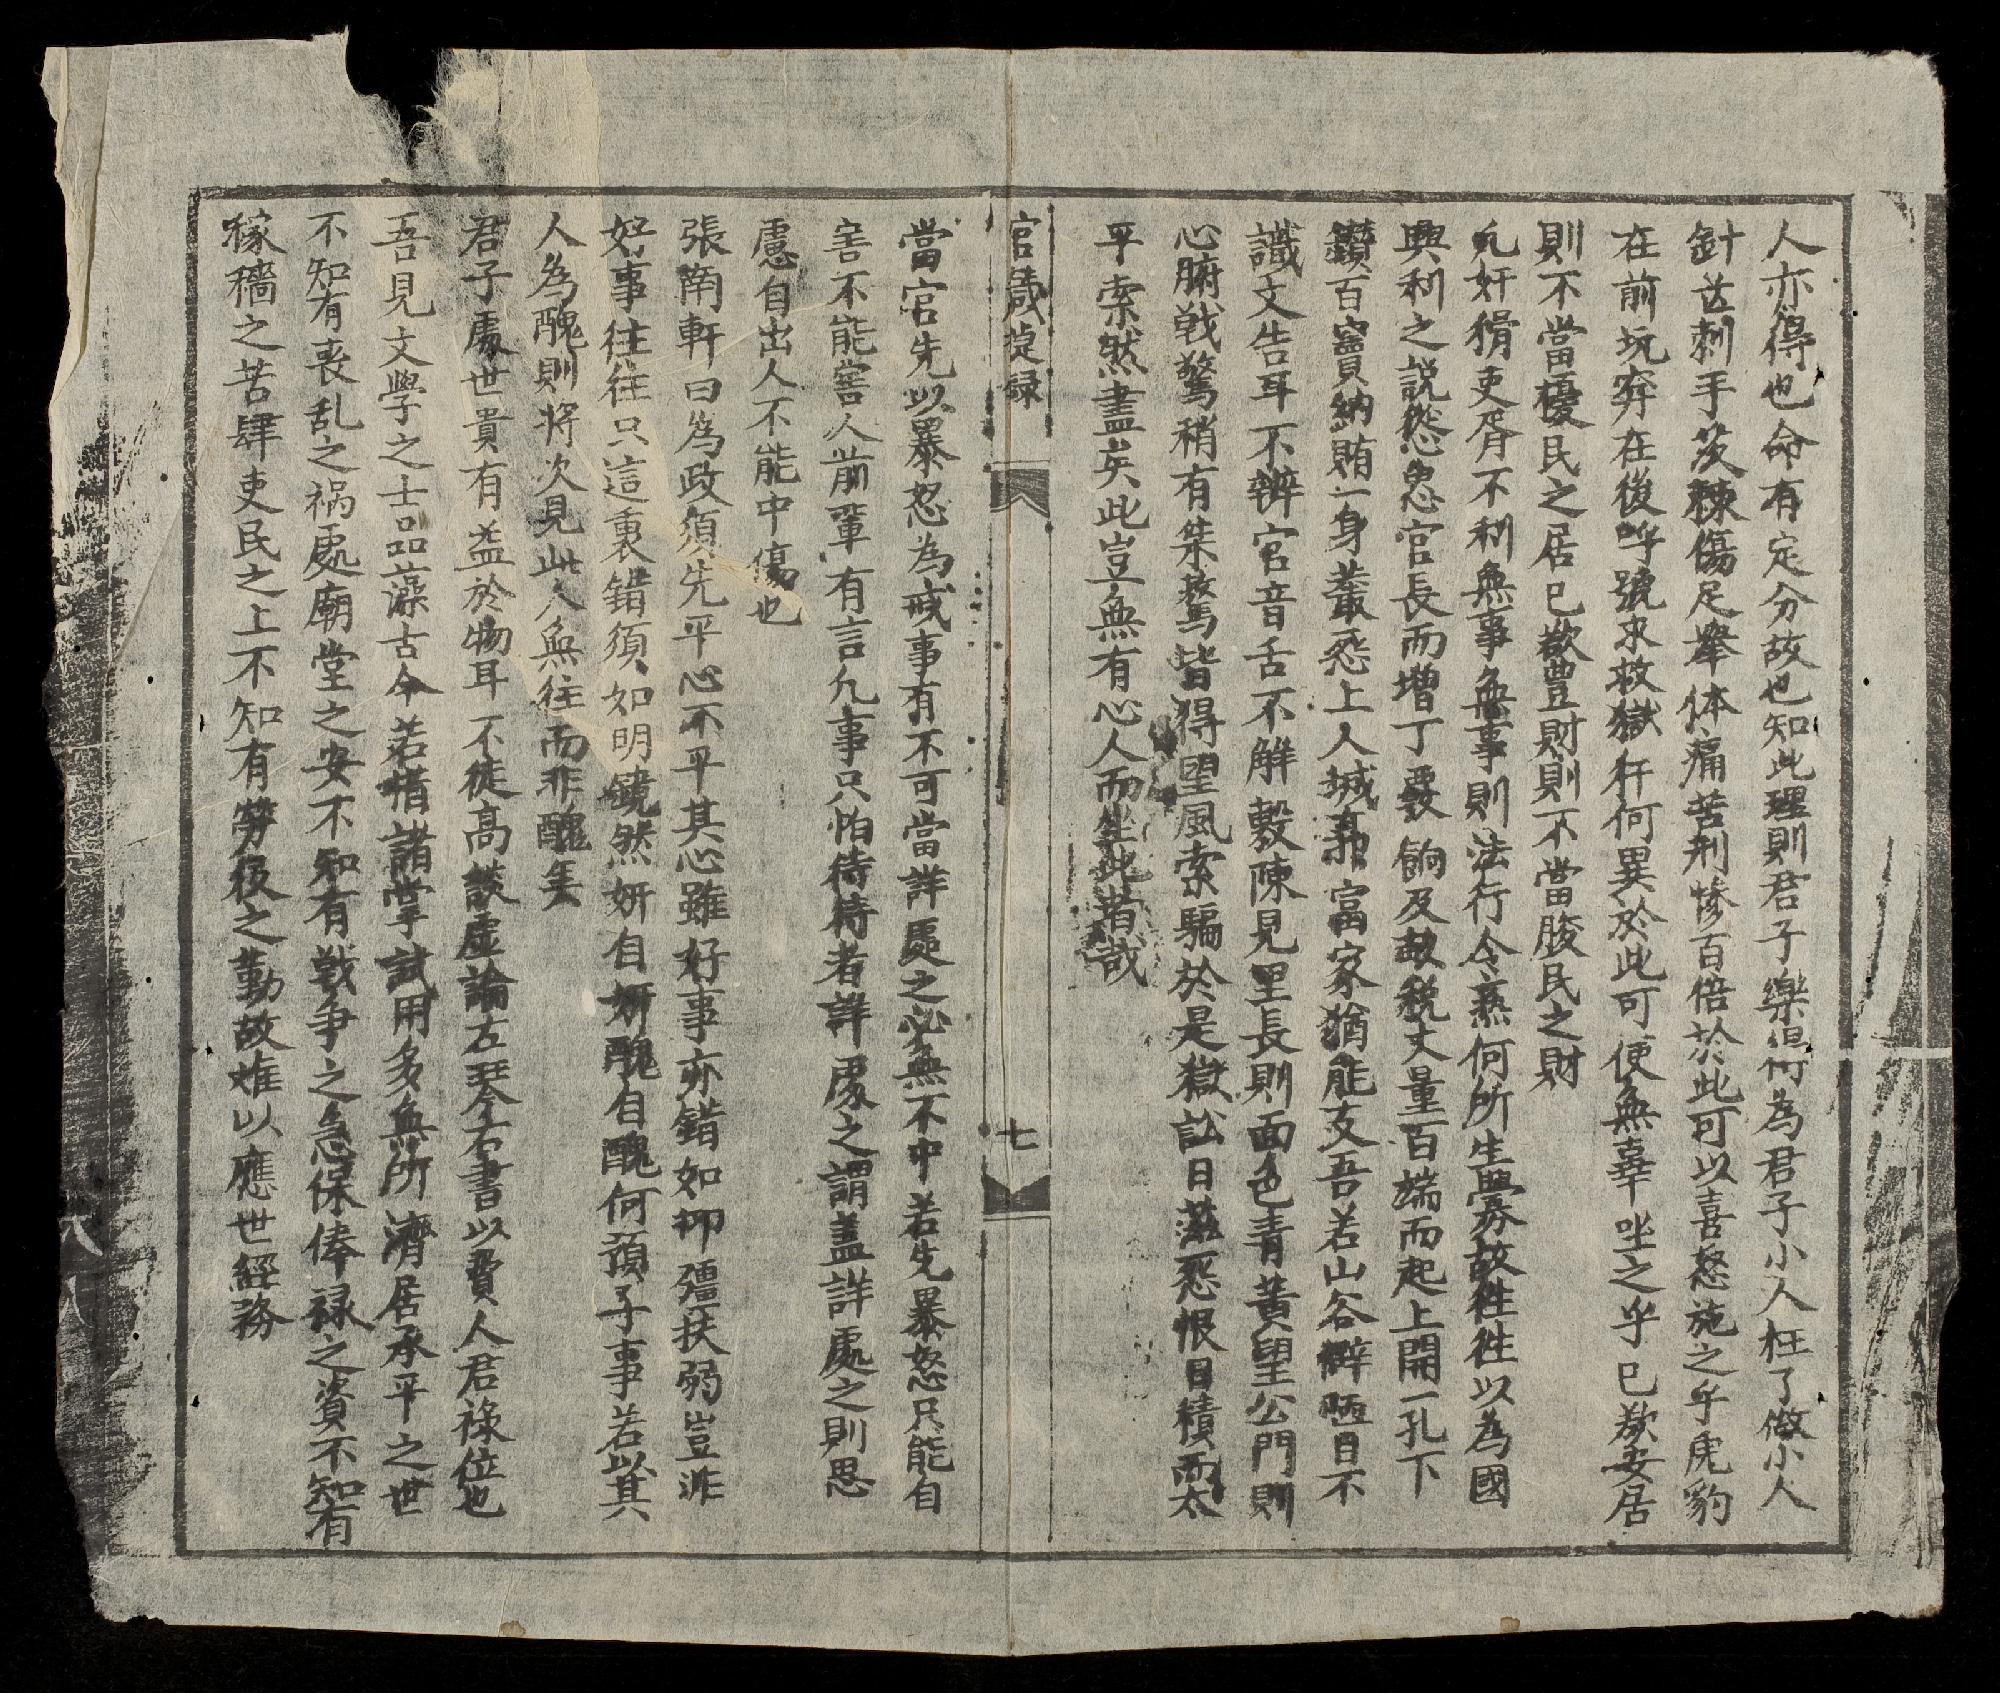 人亦得也命有定分故也知此理則君子樂得為君子小人枉了做小人
針芒刺手茨棘傷足舉体痛苦刑慘百倍於此可以喜怒施之乎虎豹
在前坑穽在後呼號求救獄犴何異於此可使無辜坐之乎已欲安居
則不當擾民之居已欲豊財則不當朘民之財
凡奸猾吏胥不利無事無事則法行令熹何所生釁故徃徃以為國
興利之說慫恿官長而增丁覈餉及敍稅丈量百端而起上開一孔下
鑽百竇納賄一身叢怨上人城郭富家猶能支吾若山谷僻陋目不
識文告耳不辨官音舌不解敷陳見里長則面色青黃望公門則
心腑戦驚稍有桀驁皆得望風索騙於是獄訟日滋怨恨日積而太
平索然盡矣此豈無有心人而坐此者哉
官箴㨗録
七
當官先以暴怒為戒事有不可當詳處之必無不中若先暴怒只能自
害不能害人前輩有言凡事只怕待待者詳處之謂盖詳處之則思
慮自出人不能中傷也
張南軒曰為政須先平心不平其心雖好事亦錯如抑彊扶弱豈非
好事往往只這裏錯須如明鏡然妍自妍醜自醜何預予事若以其
人為醜則将次見此人無往而非醜矣
君子處世貴有益於物耳不徒高談虛論左琴右書以費人君祿位也
吾見文學之士品藻古今若指諸掌試用多無所濟居承平之世
不知有喪乱之禍處廟堂之安不知有戦争之急保俸祿之資不知有
稼穡之苦肆吏民之上不知有勞役之勤故难以應世經務